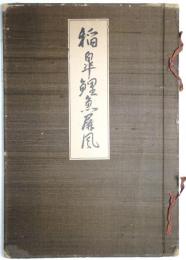 稲皐鯉魚屏風